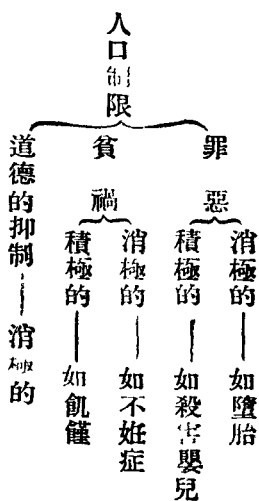 人口制限
罪惡
消極的——如墮胎
積極的——如殺害嬰兒
貧禍
消極的——如不姙症
積極的——如飢饉
道德的抑制——消極的